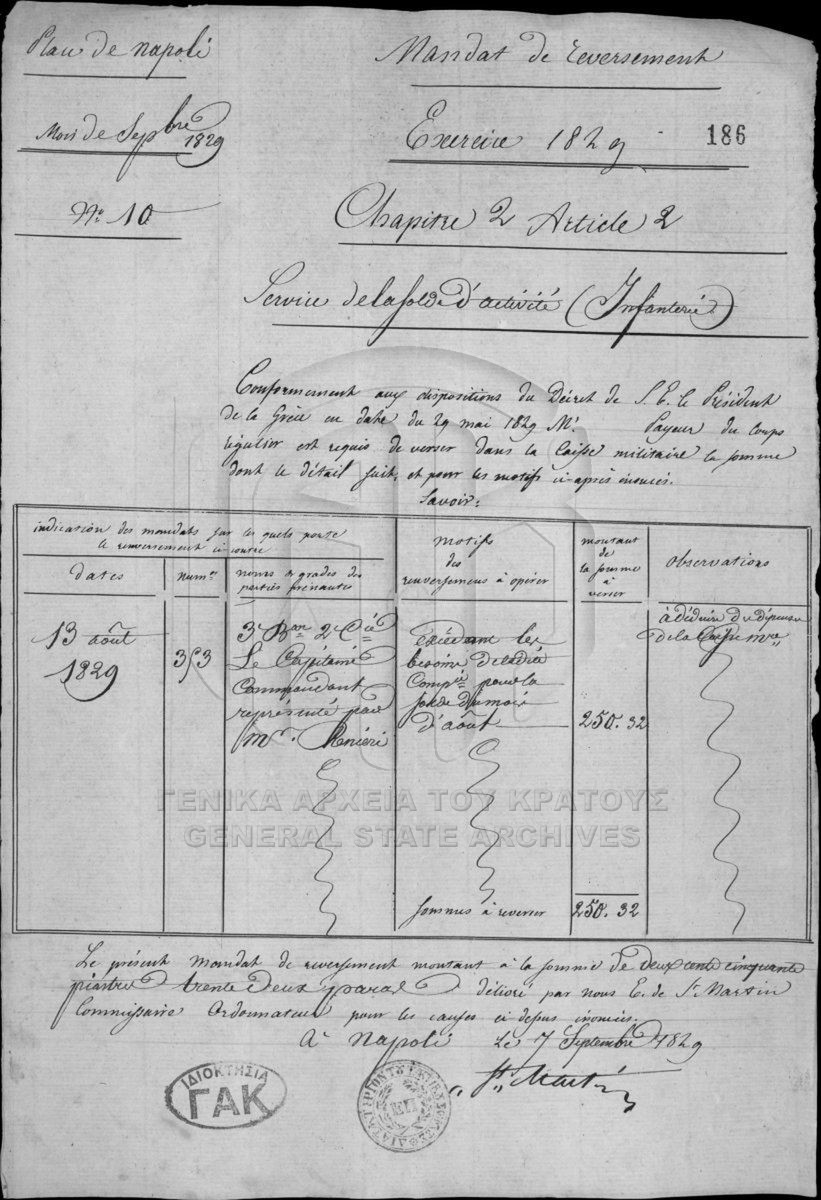 Place de Napoli
Mandat de reversement
Mois de Sepbre 1829
Exercice 1829
186
N° 10
Chapitre 2 Article 2
Service de la solde d'activité (Infanterie)
Conformement aux dispositions du Décret de S. E. le Président
de la Grèce en date du 29 mai 1829 Mr. Payeur du corps
régulier est requis de verser dans la Caisse militaire la somme
dont le détail suit, et pour les motifs ci-après énoncés.
Savoir:
indication des mandats sur les quels porte
le reversement ci contre
dates
numos
noms & grades des
parties prenantes
motifs
des
reversemens à opérer
montant
de
la somme
à
verser
observations
13 août
1829
353
3e Bon 2e Cie
Le Capitaine
Commandant
représenté par
Mr. Renieri
excédant les
besoins de ladie
Compie pour la
solde du mois
d'août
250.32
à déduire du dépense
de la Caisse mre
sommes à reverser
250.32
Le présent mandat de reversement montant à la somme de deux cents cinquante
piastres trente deux paras délivré par nous E. de St Martin
Commissaire Ordonnateur pour les causes ci dessus énoncées.
à Napoli le 7 Septembre 1829
St Martin
ΓΕΝΙΚΑ ΑΡΧΕΙΑ ΤΟΥ ΚΡΑΤΟΥΣ
GENERAL STATE ARCHIVES
ΙΔΙΟΚΤΗΣΙΑ
ΓΑΚ